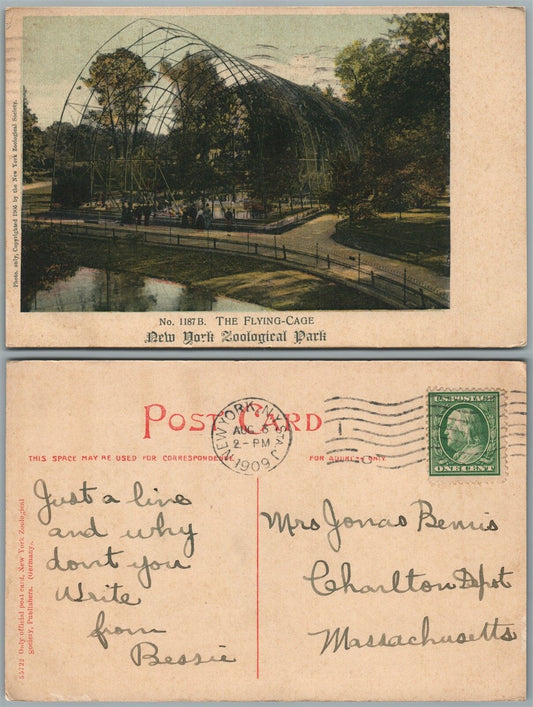 Photo. only, Copyrighted 1905 by the New York Zoological Society.
No. 1187B. THE FLYING-CAGE
New York Zoological Park
POST CARD
THIS SPACE MAY BE USED FOR CORRESPONDENCE.
FOR ADDRESS ONLY.
NEW YORK, N.Y. STA J
AUG 6
2-PM
1909
U.S. POSTAGE
ONE CENT
55722 Only official post card, New York Zoological
Society, Publishers. (Germany).
Just a line
and why
dont you
Write
from
Bessie
Mrs Jonas Bemis
Charlton Depot
Massachusetts